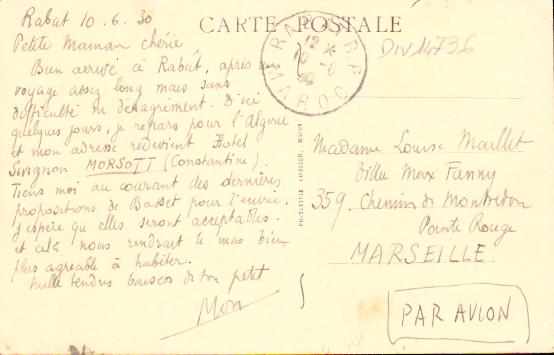 Rabat 10.6.30
Petite Maman chérie,
Bien arrivé à Rabat, après un
voyage assez long mais sans
difficulté ni désagrément. D'ici
quelques jours, je repars pour l'Algérie
et mon adresse redevient Hotel
MORSOTT (Constantine).
Tiens moi au courant des dernières
propositions de Basset pour l'
J'espère qu'elles seront acceptables.
et celà nous rendrait le mas bien
plus agréable à habiter.
Mille tendres baisers de ton petit
CARTE POSTALE
RABAT R.P.
12
10 - 6
30
MAROC
DIV14736
Madame Louise Maillet
Villa Mex Fanny
359 Chemin de Montredon
Pointe Rouge
MARSEILLE.
PAR AVION